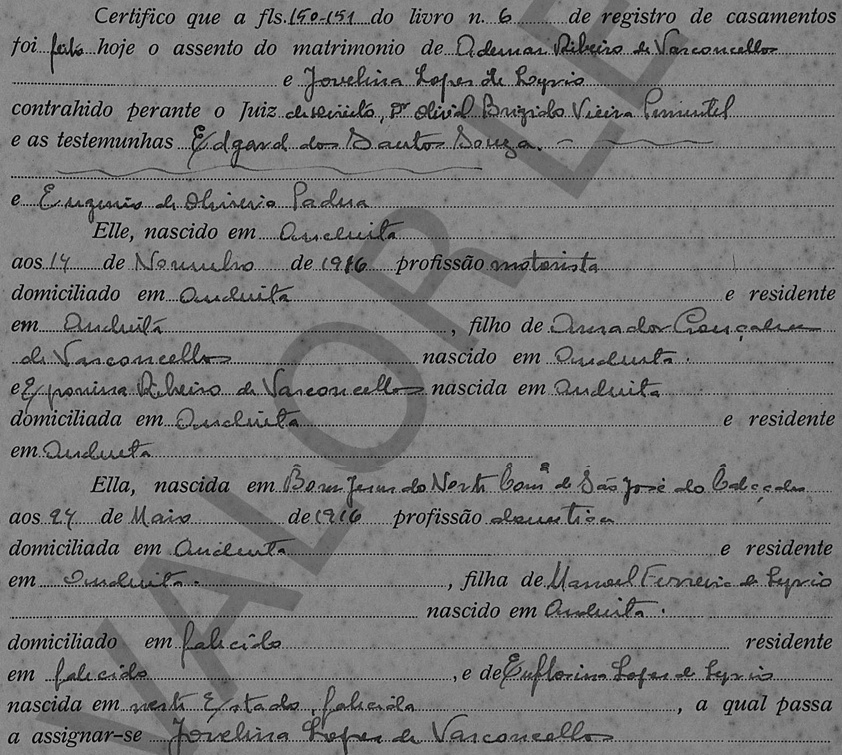 Certifico que a fls. 150-151 do livro n. 6 de registro de casamentos
foi feito hoje o assento do matrimonio de Ademar Ribeiro de Vasconcellos
e Jovelina Lopes de Lyrio
contrahido perante o Juiz de direito, Dr Olival Brigido Vieira Pimentel
e as testemunhas Edgard dos Santos Souza.
e Eugenio de Oliveira Padua
Elle, nascido em Anchieta
aos 14 de Novembro de 1916 profissão motorista
domiciliado em Anchieta e residente
em Anchieta, filho de Amador Gonçalves
de Vasconcellos nascido em Anchieta.
e Eponina Ribeiro de Vasconcellos nascida em Anchieta
domiciliada em Anchieta e residente
em Anchieta
Ella, nascida em Bom Jesus do Norte Comª de São José do Calçado
aos 24 de Maio de 1916 profissão domestica
domiciliada em Anchieta e residente
em Anchieta., filha de Manoel Ferreira de Lyrio
nascido em Anchieta.
domiciliado em falecido residente
em falecido, e de Euflorina Lopes de Lyrio
nascida em neste Estado, falecida, a qual passa
a assignar-se Jovelina Lopes de Vasconcellos
VALOR LE